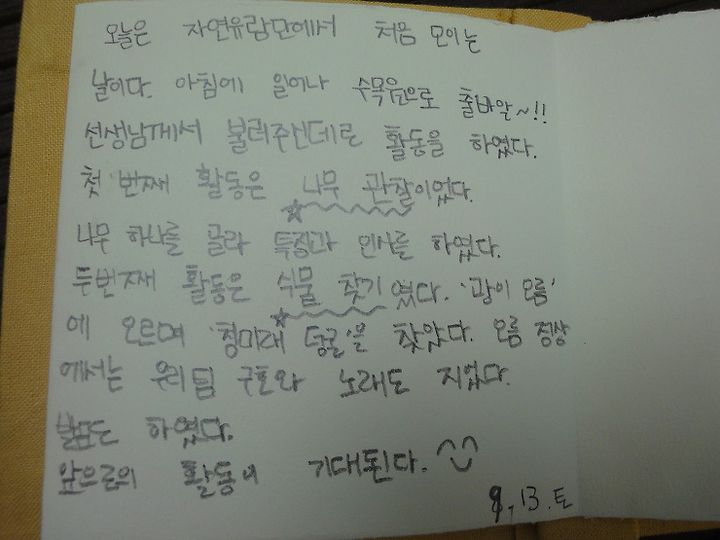 오늘은 자연유람단에서 처음 모이는
날이다. 아침에 일어나 수목원으로 출바알~!!
선생님께서 불러주신데로 활동을 하였다.
첫 번째 활동은 나무 관찰이었다.
나무 하나를 골라 특징과 인사를 하였다.
두번째 활동은 식물 찾기였다. '광이 오름'
에 오르며 '청미래 덩굴'을 찾았다. 오름 정상
에서는 우리팀 구호와 노래도 지었다.
하였다.
앞으로의 활동이 기대된다. ^^
9. 13. 토